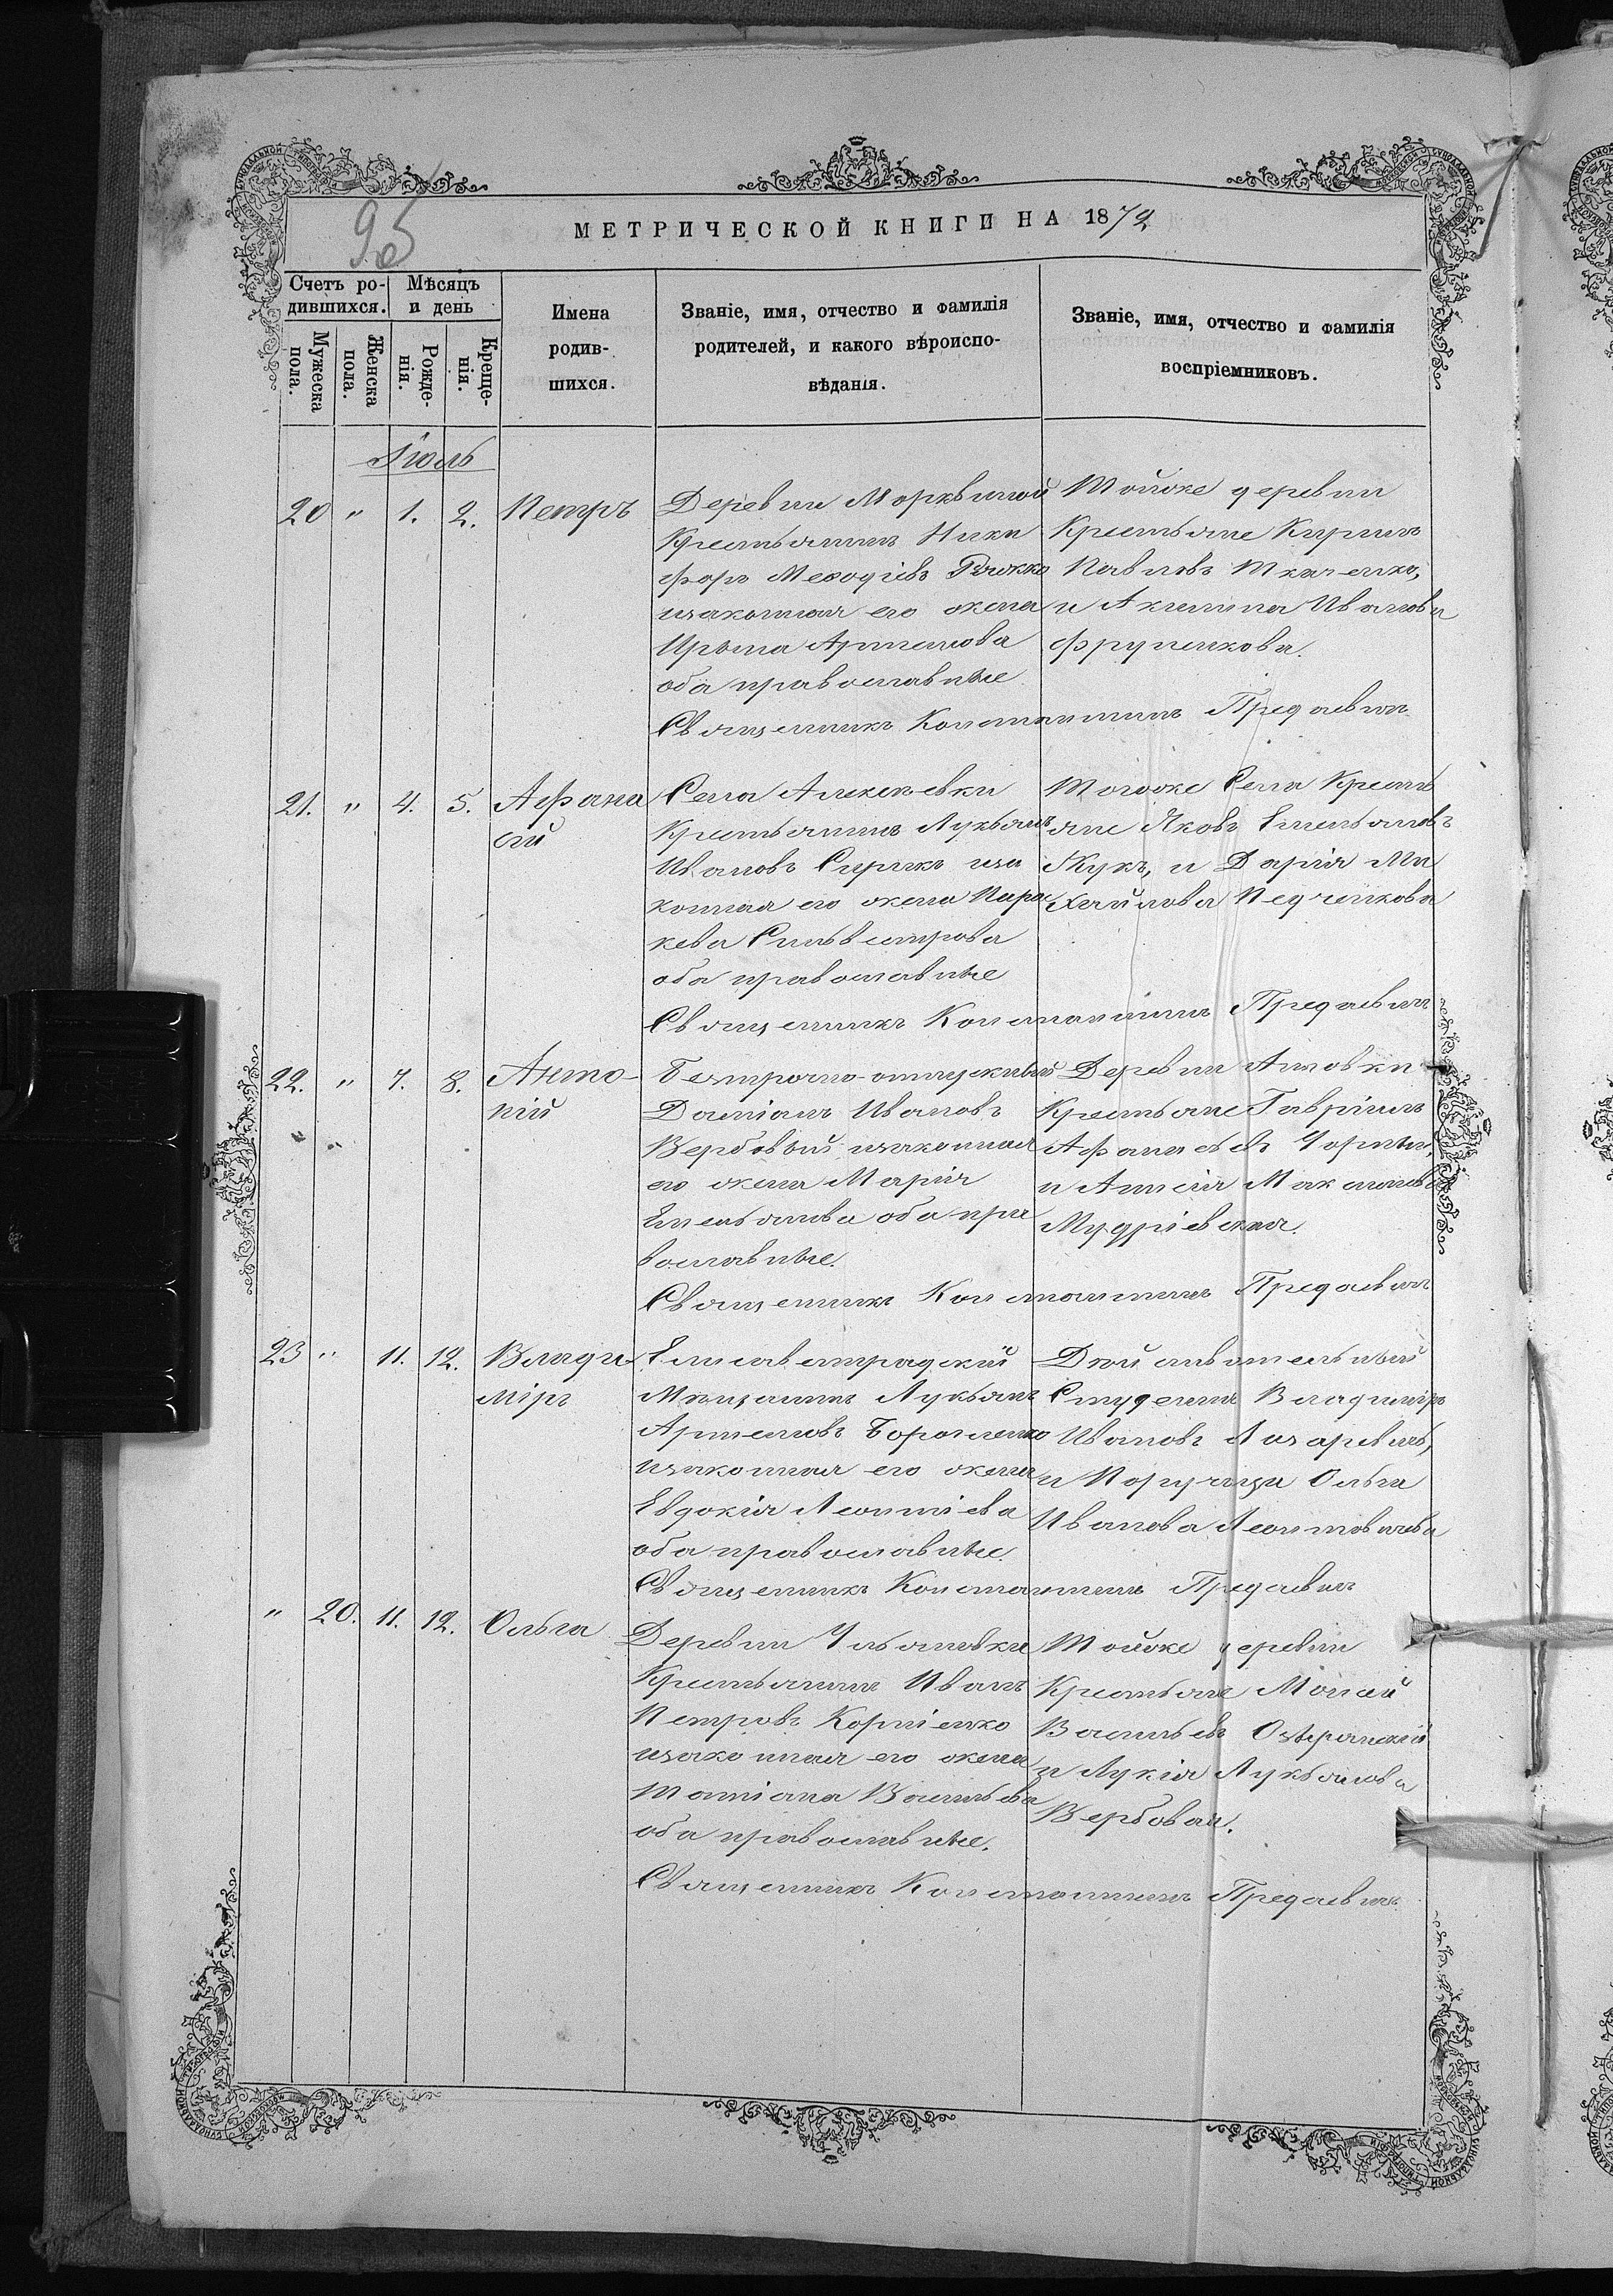 95
МЕТРИЧЕСКОЙ КНИГИ НА 1872
Счетъ ро-
дившихся.
Мѣсяцъ
и день
Мужеска
пола.
Женска
пола.
Рожде-
нія.
Креще-
нія.
Имена
родив-
шихся.
Званіе, имя, отчество и фамилія
родителей, и какого вѣроиспо-
вѣданія.
Званіе, имя, отчество и фамилія
воспріемниковъ.
Іюль
20 " 1. 2. Петръ
Деревни Морквиной
Крестьянинъ Ники
форъ Меѳодіевъ
изаконная его жена
Ирина Артемова
оба православные
Тойже деревни
Крестьяне Кирилъ
Павловъ Ткаченко,
и Акилина Иванова
Священникъ Константинъ Предаевичъ
21. " 4. 5. Афана
сій
Села Алексѣевки
Крестьянинъ Лукьянъ
Ивановъ Сиракъ иза
конная его жена Пара
кева Сильвестрова
оба православные
Тогоже Села Кресть
яне Яковъ Емельяновъ
Жукъ, и Дарія Ми
хайлова Педченкова
Священникъ Константинъ Предаевичъ
22. " 7. 8. Анто-
ній
Безсрочно-отпускный
Даміанъ Ивановъ
Вербовый изаконная
его жена Марія
Емельянова оба пра
вославные.
Деревни Анновки
Крестьяне Гавріилъ
Афанасьевъ Чорный,
и Анисія Максимова
Мудріевская.
Священникъ Константинъ Предаевичъ
23 " 11. 12. Влади-
міръ
Елисаветградскій
Мѣщанинъ Лукьянъ
Артемовъ
изаконная его жена
Евдокія Леонтіева
оба православные.
Студентъ Владиміръ
Ивановъ Лазаревичъ,
и Ольга
Иванова Леонтовичева
Священникъ Константинъ Предаевичъ
" 20. 11. 12. Ольга
Деревни Ульяновки
Крестьянинъ Иванъ
Петровъ Корніенко
изаконная его жена
Татіана Васильева
оба православные.
Тойже деревни
Крестьяне Моисей
Васильевъ
и Лукія Лукьянова
Вербовая.
Священникъ Константинъ Предаевичъ